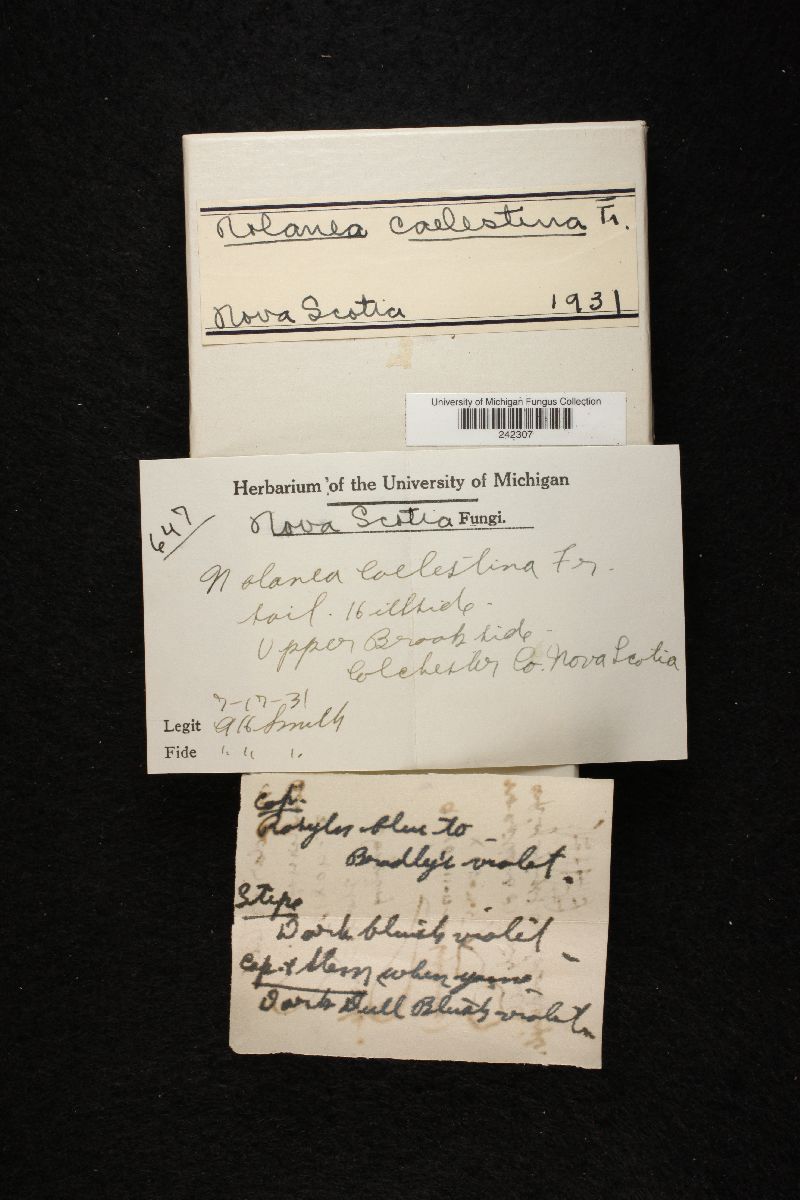 Nolanea caelestina Fr.
Nova Scotia 1931
University of Michigan Fungus Collection
242307
Herbarium of the University of Michigan
647
Nova Scotia Fungi.
Nolanea Coelestina Fr.
soil. Hillside.
Upper Brookside.
Colchester Co. Nova Scotia
7-17-31
Legit AH Smith
Fide " " "
Cap.
blue to
Bradley's violet.
Stipe
Dark bluish violet
Cap & Stem when young
Dark Dull Bluish violet